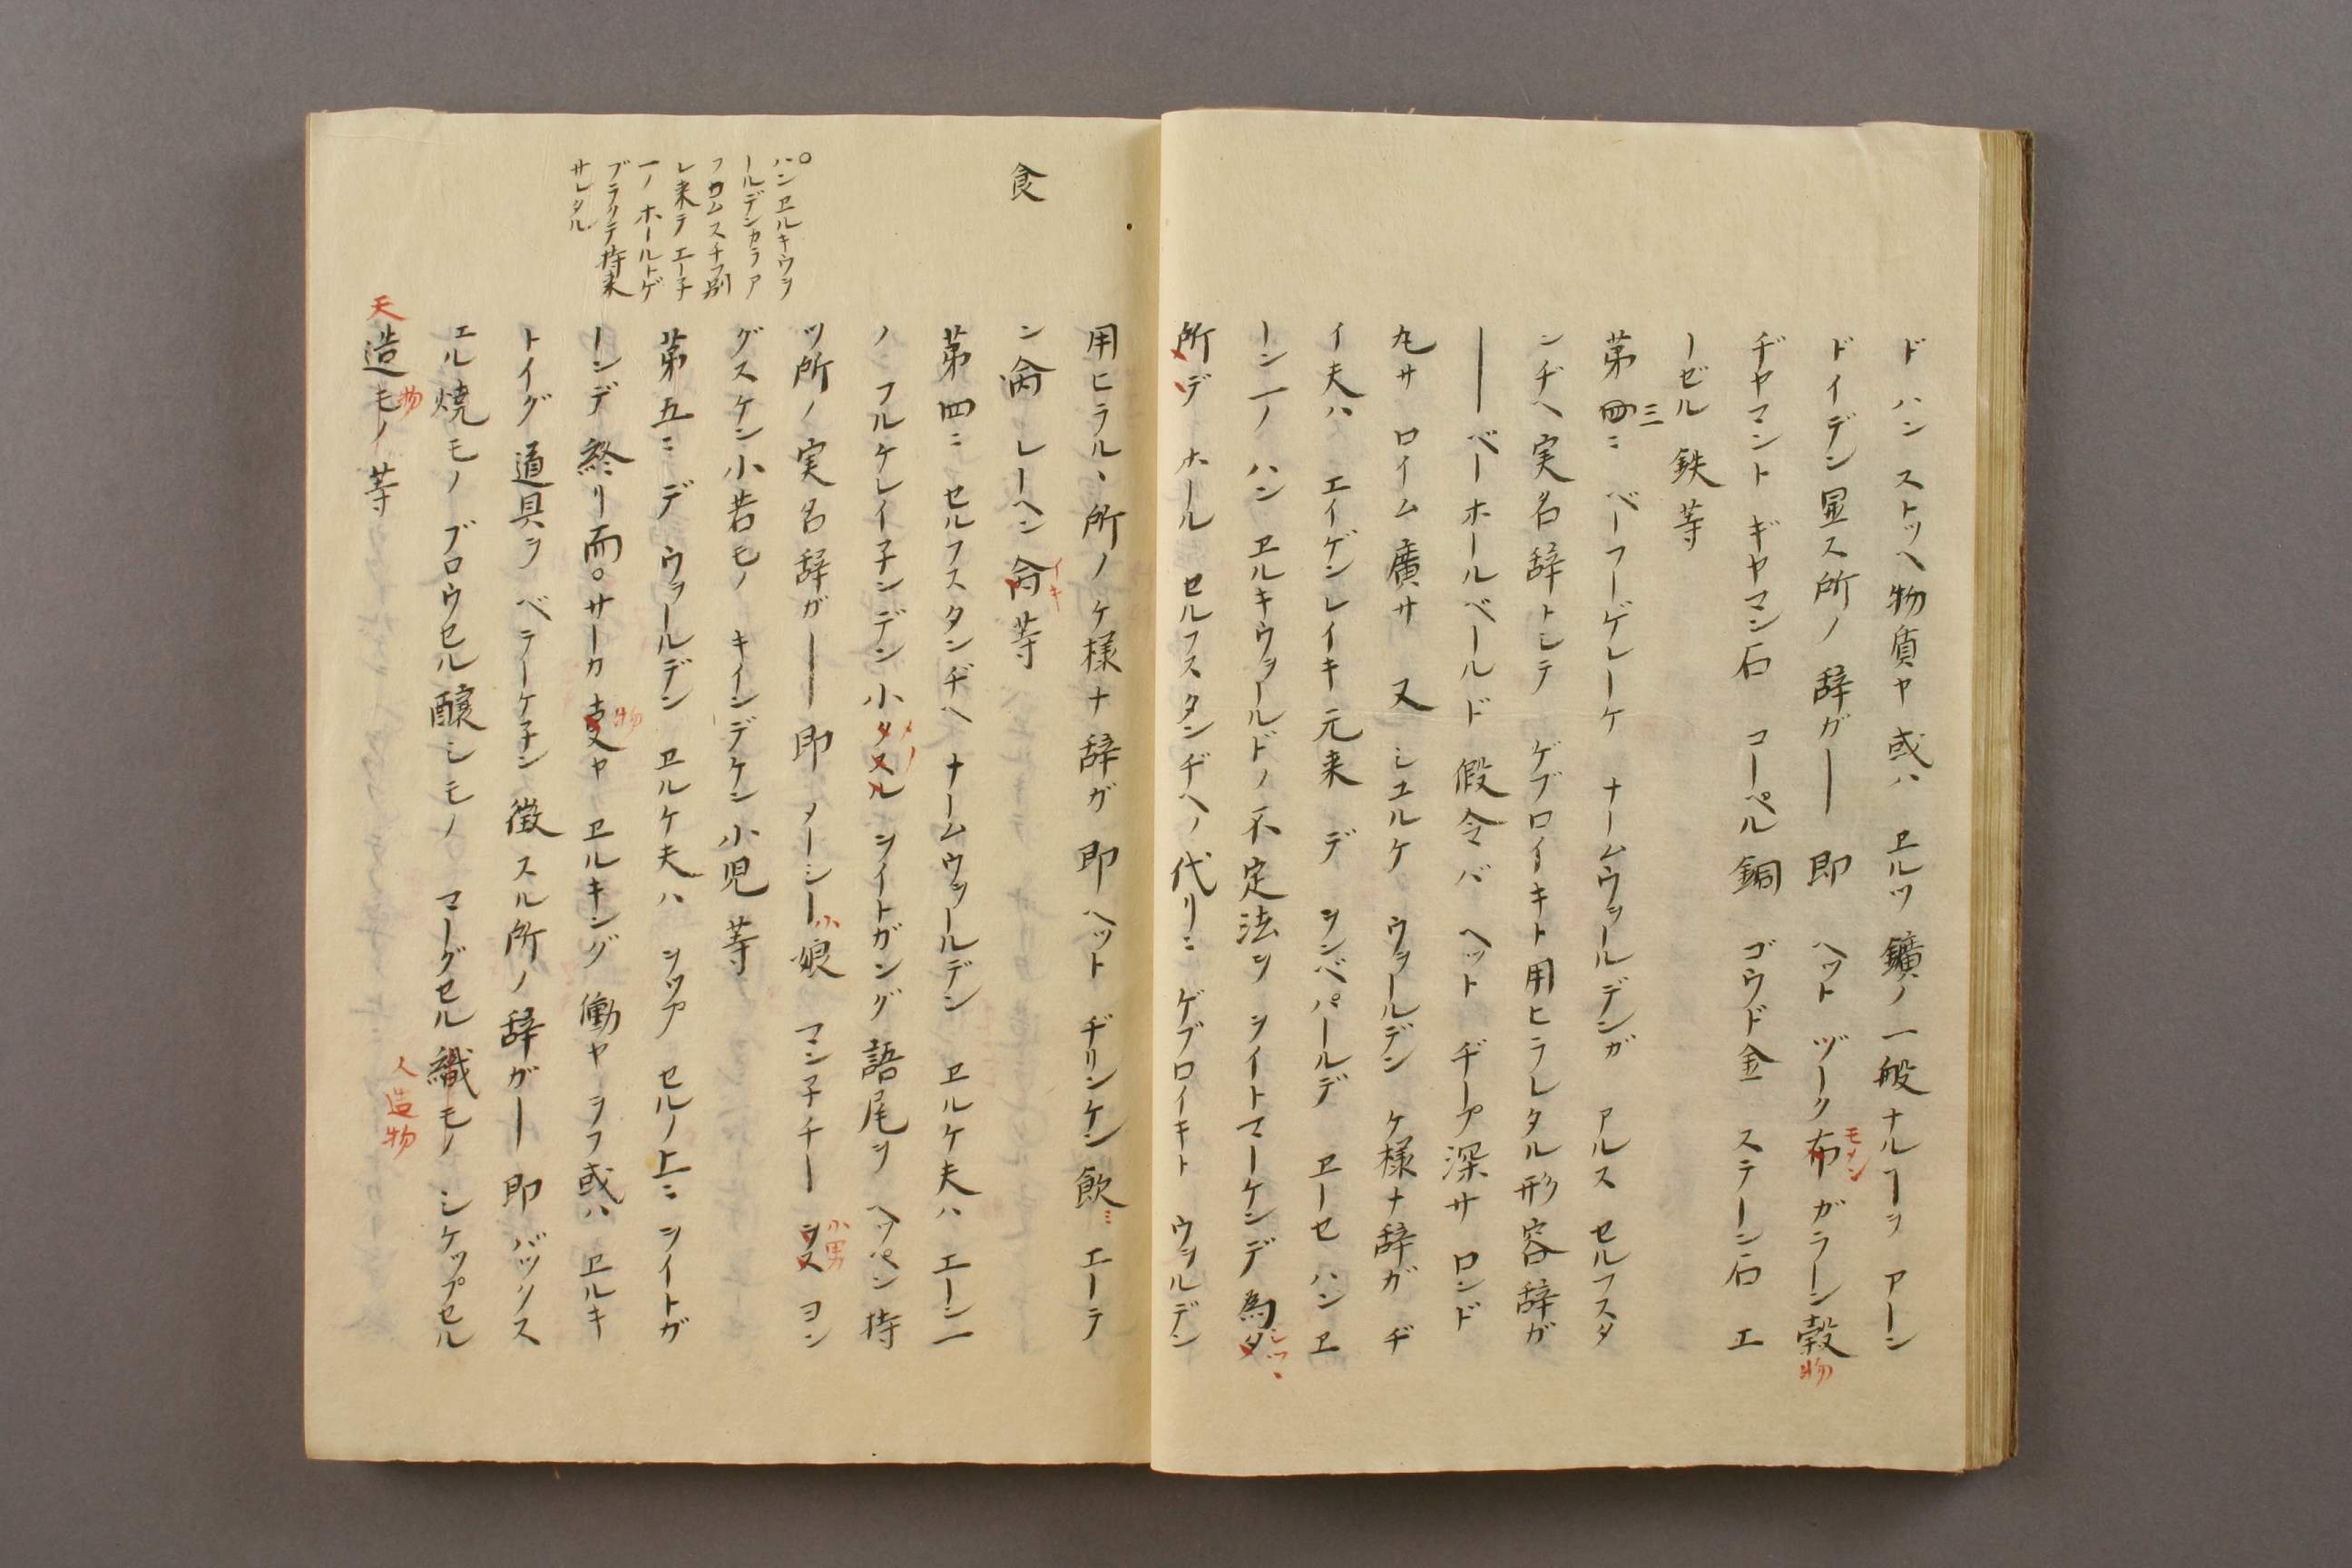 ド ハン ストッヘ 物質ヤ 或ハ ヱルツ 鑛ノ 一般ナルヿヲ アーン
ドイデン 显ス所ノ 辞ガ— 即 ヘット ヅーク 布 ガラーン 穀
モメン
物
ヂヤマント ギヤマン石 コーペル 銅 ゴウド 金 ステーン 石 エ
ーゼル 鉄 等
第四ニ ベーフーゲレーケ ナームウヲールデンガ アルス セルフスタ
三
ンヂヘ 実名辞トシテ ゲブロイキト 用ヒラレタル 形容辞ガ
— ベーホールベールド 假令バ ヘット ヂープ 深サ ロンド
丸サ ロイム 廣サ 又 シユルケ ウヲールデン ケ様ナ辞ガ ヂ
イ夫ハ エイゲンレイキ 元来 デ ヲンベパールデ ヱーセ ハン ヱ
ーン一ノ ハン ヱルキウヲールドノ 不定法ヲ ヲイトマーケンデ 為タ
シツヽ
所デ ホール セルフスタンヂヘノ 代リニ ゲブロイキト ウヲルデン
用ヒラルヽ所ノ ケ様ナ辞ガ 即 ヘット ヂリンケン 飲ミ エーテ
食
ン 㑹 レーヘン 命 等
イキ
第四ニ セルフスタンヂヘ ナームウヲールデン ヱルケ夫ハ エーン一
ノン フルケレイ子ンデン 小タスル ヲイトガング 語尾ヲ ヘッペン 持
メノ
ツ所ノ 実名辞ガ— 即 メーシー 娘 マン子チー ヲヌ ヨン
小
小男
グスケン 小若モノ キインデケン 小児 等
第五ニ デ ウヲールデン ヱルケ夫ハ ヲップ セルノ上ニ ヲイトガ
ーンデ 終リ而。サーカ 支ヤ ヱルキング 働ヤ ヲフ或ハ ヱルキ
物
○ハン ヱルキウヲ
ールデンカラ ア
フカムスチフ 別
レ来テ エー子
一ノ ホールトゲ
ブラクテ 持来
サレタル
トイグ 道具ヲ ベテーケ子ン 徴スル所ノ 辞ガ— 即 バッリス
エル 焼モノ ブロウセル 醸シモノ マーグセル 織モノ シケップセル
人造物
天
造モノ 等
物